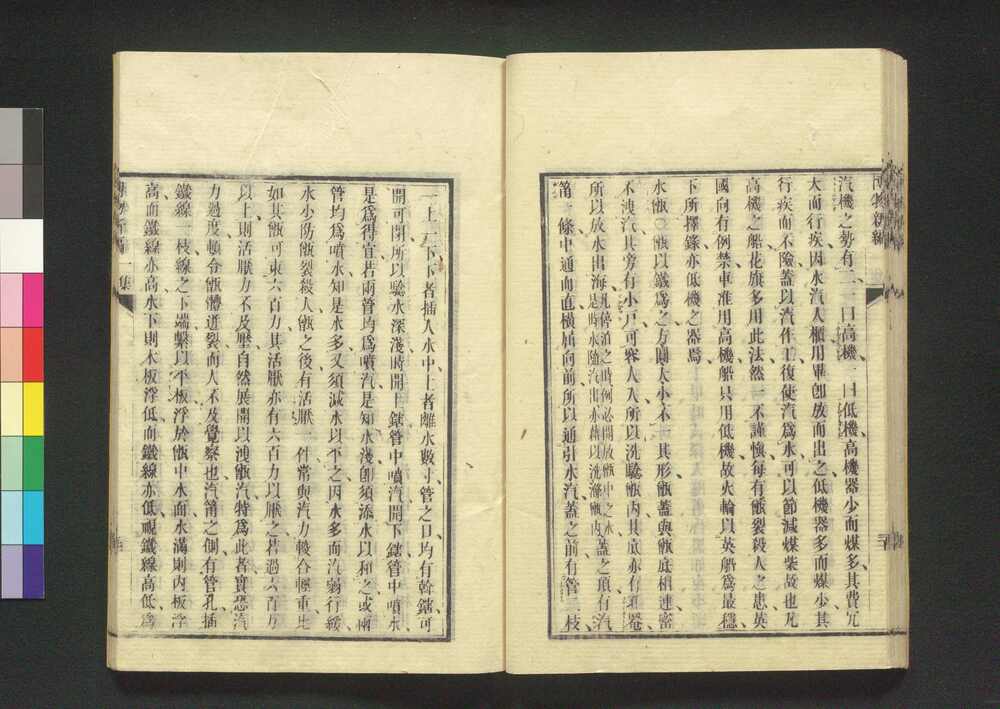 博物新編
汽機之勢有二一曰高機一曰低機高機器少而煤多其費冗
大而行疾因水汽人櫃用畢卽放而出之低機器多而煤少其
行疾而不險蓋以汽作工復使汽爲水可以節減煤柴故也凡
高機之船花旗多用此法然一不謹愼每有甑裂殺人之患英
國向有例禁車准用高機船只用低機故火輪以英船爲最穩
下所擇錄亦低機之器焉
水甑 甑以鐵爲之方圓大小不一其形甑蓋與甑底相連密
不洩汽其旁有小戸可容人入所以洗驗甑內其底亦有雞罨
所以放水出海凡停泊之時例必開放甑中之水是時水隨汽出亦藉以洗滌甑內蓋之頂有汽
筩一條中通而直橫屈向前所以通引水汽蓋之前有管二枝
一上一下下者插入水中上者離水數寸管之口均有斡鎋可
開可閉所以驗水深淺時開上鎋管中噴汽開下鎋管中噴水
是爲得宜若兩管均爲噴汽是知水淺卽須添水以和之或兩
管均爲噴水知是水多又須減水以平之因水多而汽弱行緩
水少防甑裂殺人甑之後有活厭一件常與汽力較合輕重比
如其甑可東六百力其活厭亦有六百力以厭之若過六百力
以上則活厭力不及壓自然展開以洩甑汽特爲此者實恐汽
力過度頓令甑體迸裂而人不及覺察也汽筩之側有管孔插
鐵線一枝線之下端繫以平板浮於甑中水面水滿則內板浮
高而鐵線亦高水下則木板浮低而鐵線亦低視鐵線高低爲
一集